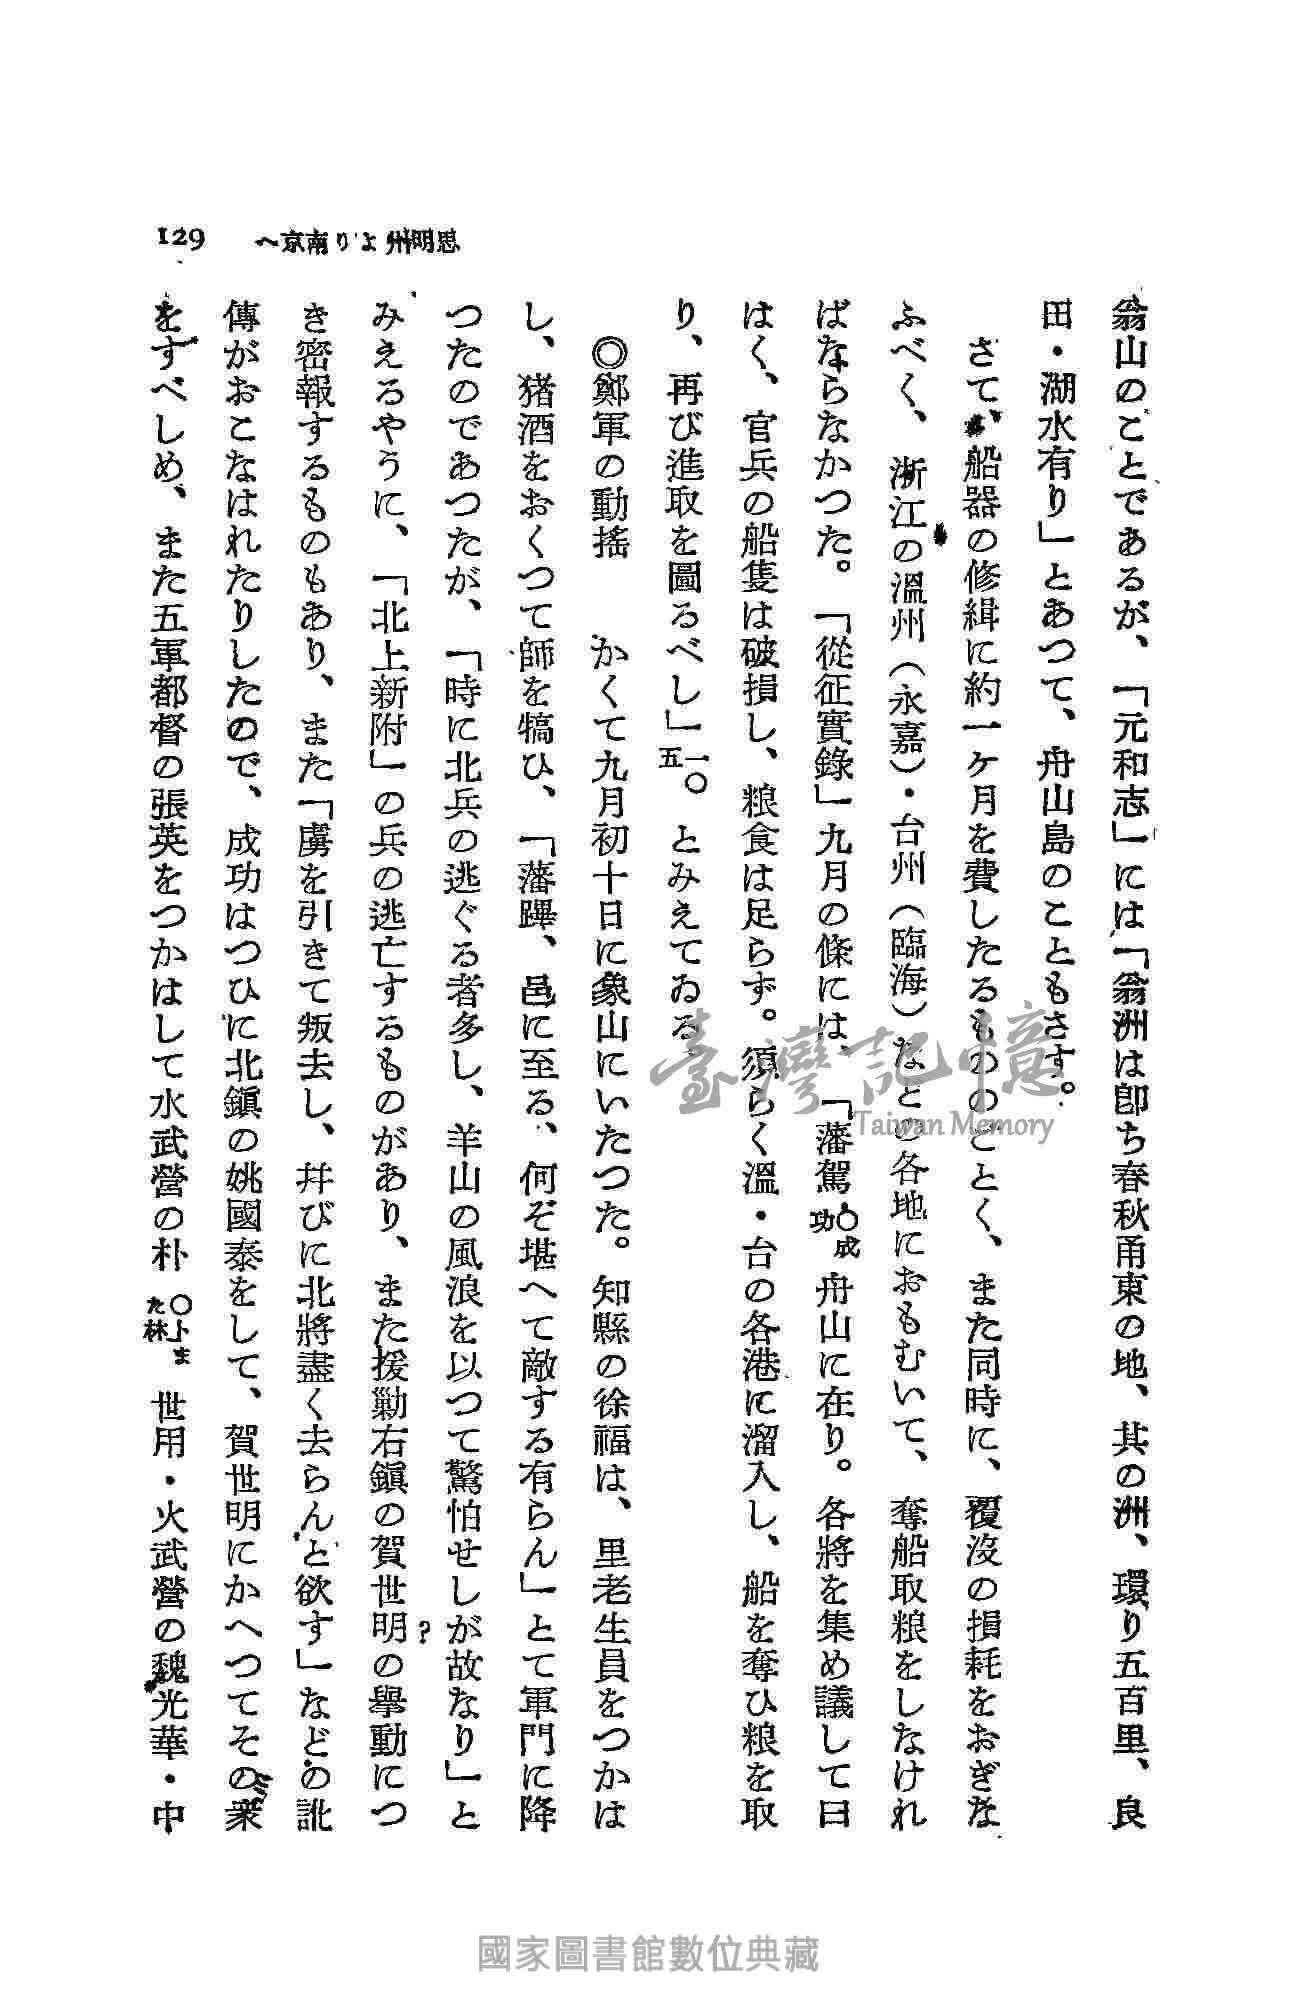 129 思明州より南京へ
翁山のことであるが、「元和志」には「翁洲は卽ち春秋甬東の地、其の洲、環り五百里、良
田・湖水有り」とあつて、舟山島のこともさす。
さて、船器の修緝に約一ケ月を費したるもののごとく、また同時に、覆沒の損耗をおぎな
ふべく、浙江の溫州（永嘉）・台州（臨海）などの各地におもむいて、奪船取粮をしなけれ
ばならなかつた。「從征實錄」九月の條には、「藩駕〇成功舟山に在り。各將を集め議して曰
はく、官兵の船隻は破損し、粮食は足らず。須らく溫・台の各港に溜入し、船を奪ひ粮を取
り、再び進取を圖るべし」一五〇とみえてゐる。
◎鄭軍の動搖 かくて九月初十日に象山にいたつた。知縣の徐福は、里老生員をつかは
し、猪酒をおくつて師を犒ひ、「藩蹕、邑に至る、何ぞ堪へて敵する有らん」とて軍門に降
つたのであつたが、「時に北兵の逃ぐる者多し、羊山の風浪を以つて驚怕せしが故なり」と
みえるやうに、「北上新附」の兵の逃亡するものがあり、また援勦右鎭の賀世明?の擧動につ
き密報するものもあり、また「虜を引きて叛去し、幷びに北將盡く去らんと欲す」などの訛
傳がおこなはれたりしたので、成功はつひに北鎭の姚國泰をして、賀世明にかへつてその衆
をすべしめ、また五軍都督の張英をつかはして水武營の朴〇卜また林世用・火武營の魏光華・中
臺灣記憶
Taiwan Memory
國家圖書館數位典藏